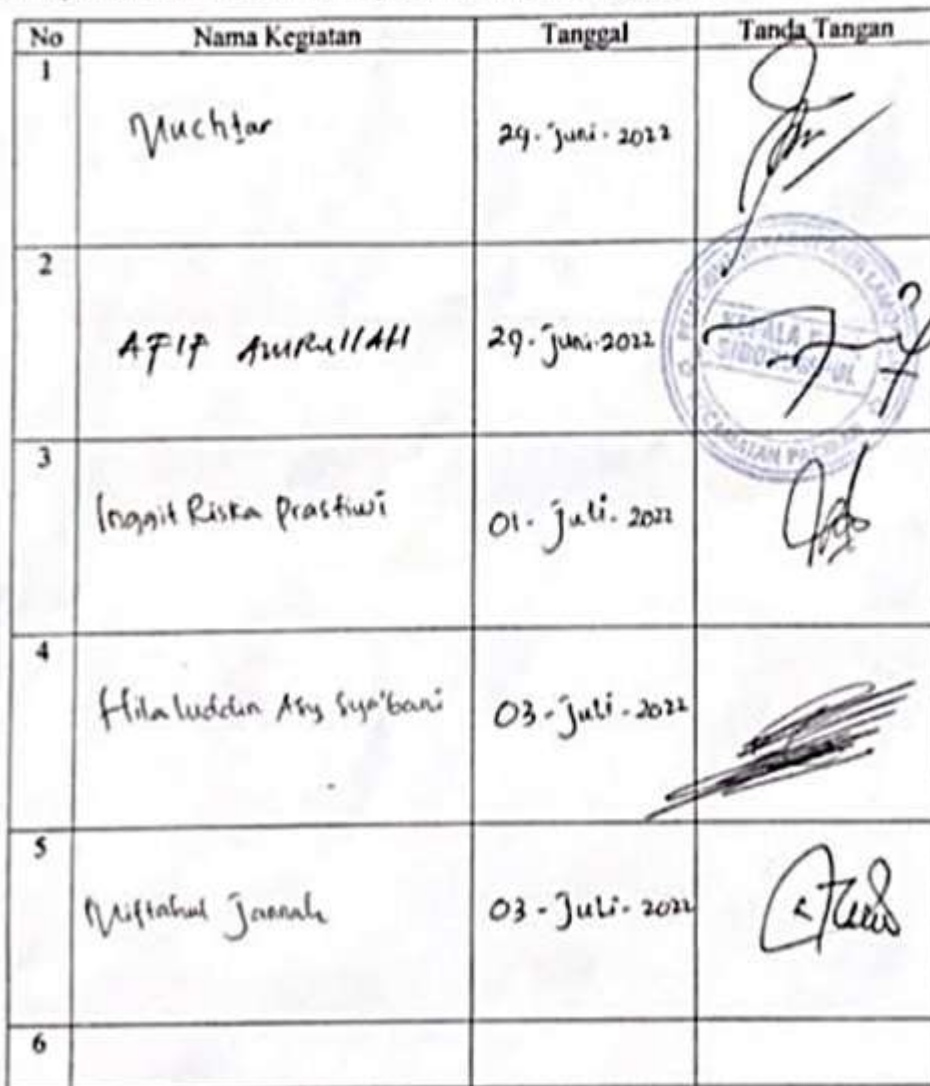 No Nama Kegiatan Tanggal Tanda Tangan
1 Muchtar 24-juni-2022
2 AFIF AMRULLAH 29-juni-2022
KEPALA
3 Inggit Riska Prastiwi 01-juli-2022
4 Hilaluddin Asy Sya'bani 03-juli-2022
5 Miftahul Jannah 03-juli-2022
6